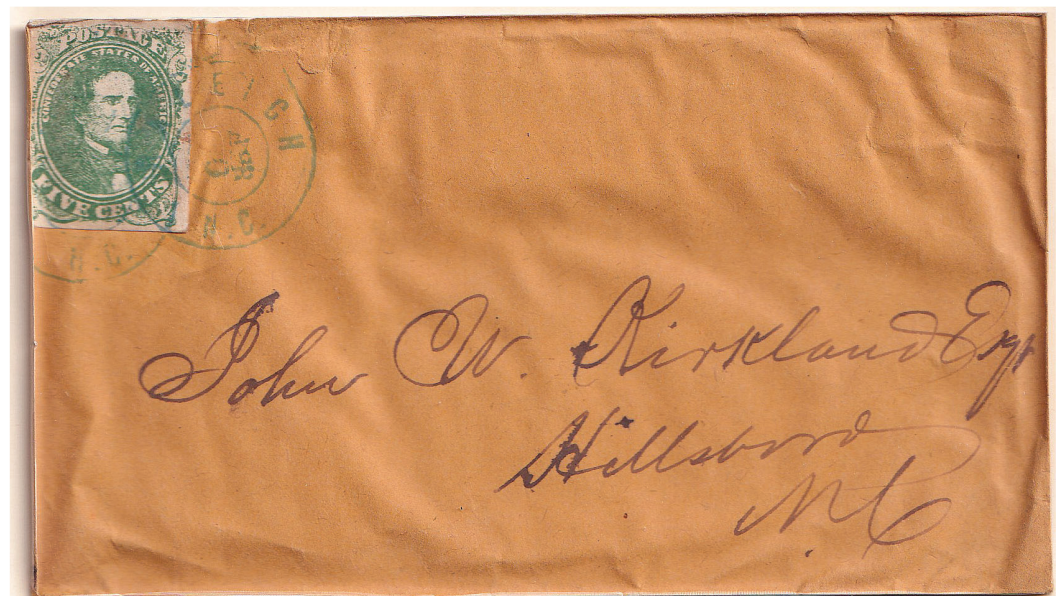 POSTAGE
CONFEDERATE STATES OF AMERICA
FIVE CENTS
EIGH
N.C.
N.C.
John W. Kirkland Esqr
Hillsboro
N.C